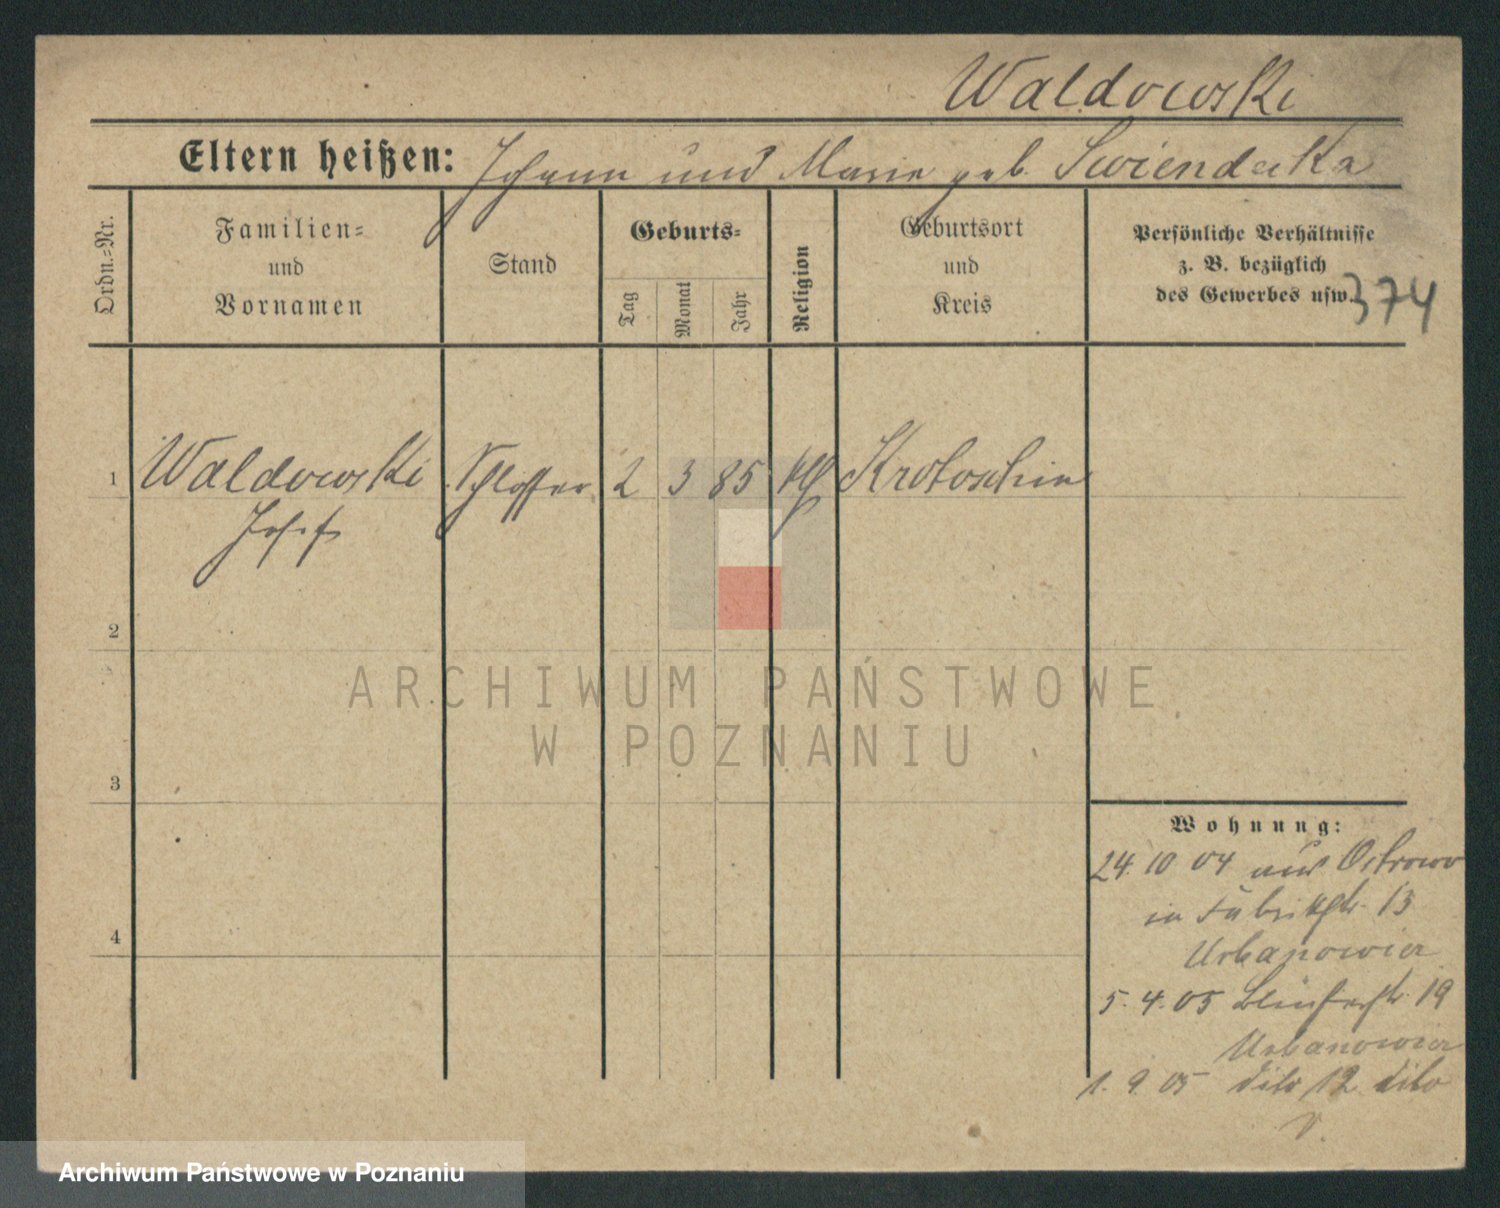 Waldowski
Eltern heißen: Johann und Marie geb. Swienderka
Ordn.-Nr.
Familien- und Vornamen
Stand
Geburts-
Tag
Monat
Jahr
Religion
Geburtsort und Kreis
Persönliche Verhältnisse
z. B. bezüglich
des Gewerbes usw.
374
1 Waldowski Schlosser 2 3 85 kth Krotoschin
Josef
2
ARCHIWUM PAŃSTWOWE
W POZNANIU
3
Wohnung:
24. 10 04 aus Ostrowo
in Fabrikstr. 13
4
Urbanowicz
5. 4. 05 19
Urbanowicz
1. 9. 05 dito 12 dito
Archiwum Państwowe w Poznaniu